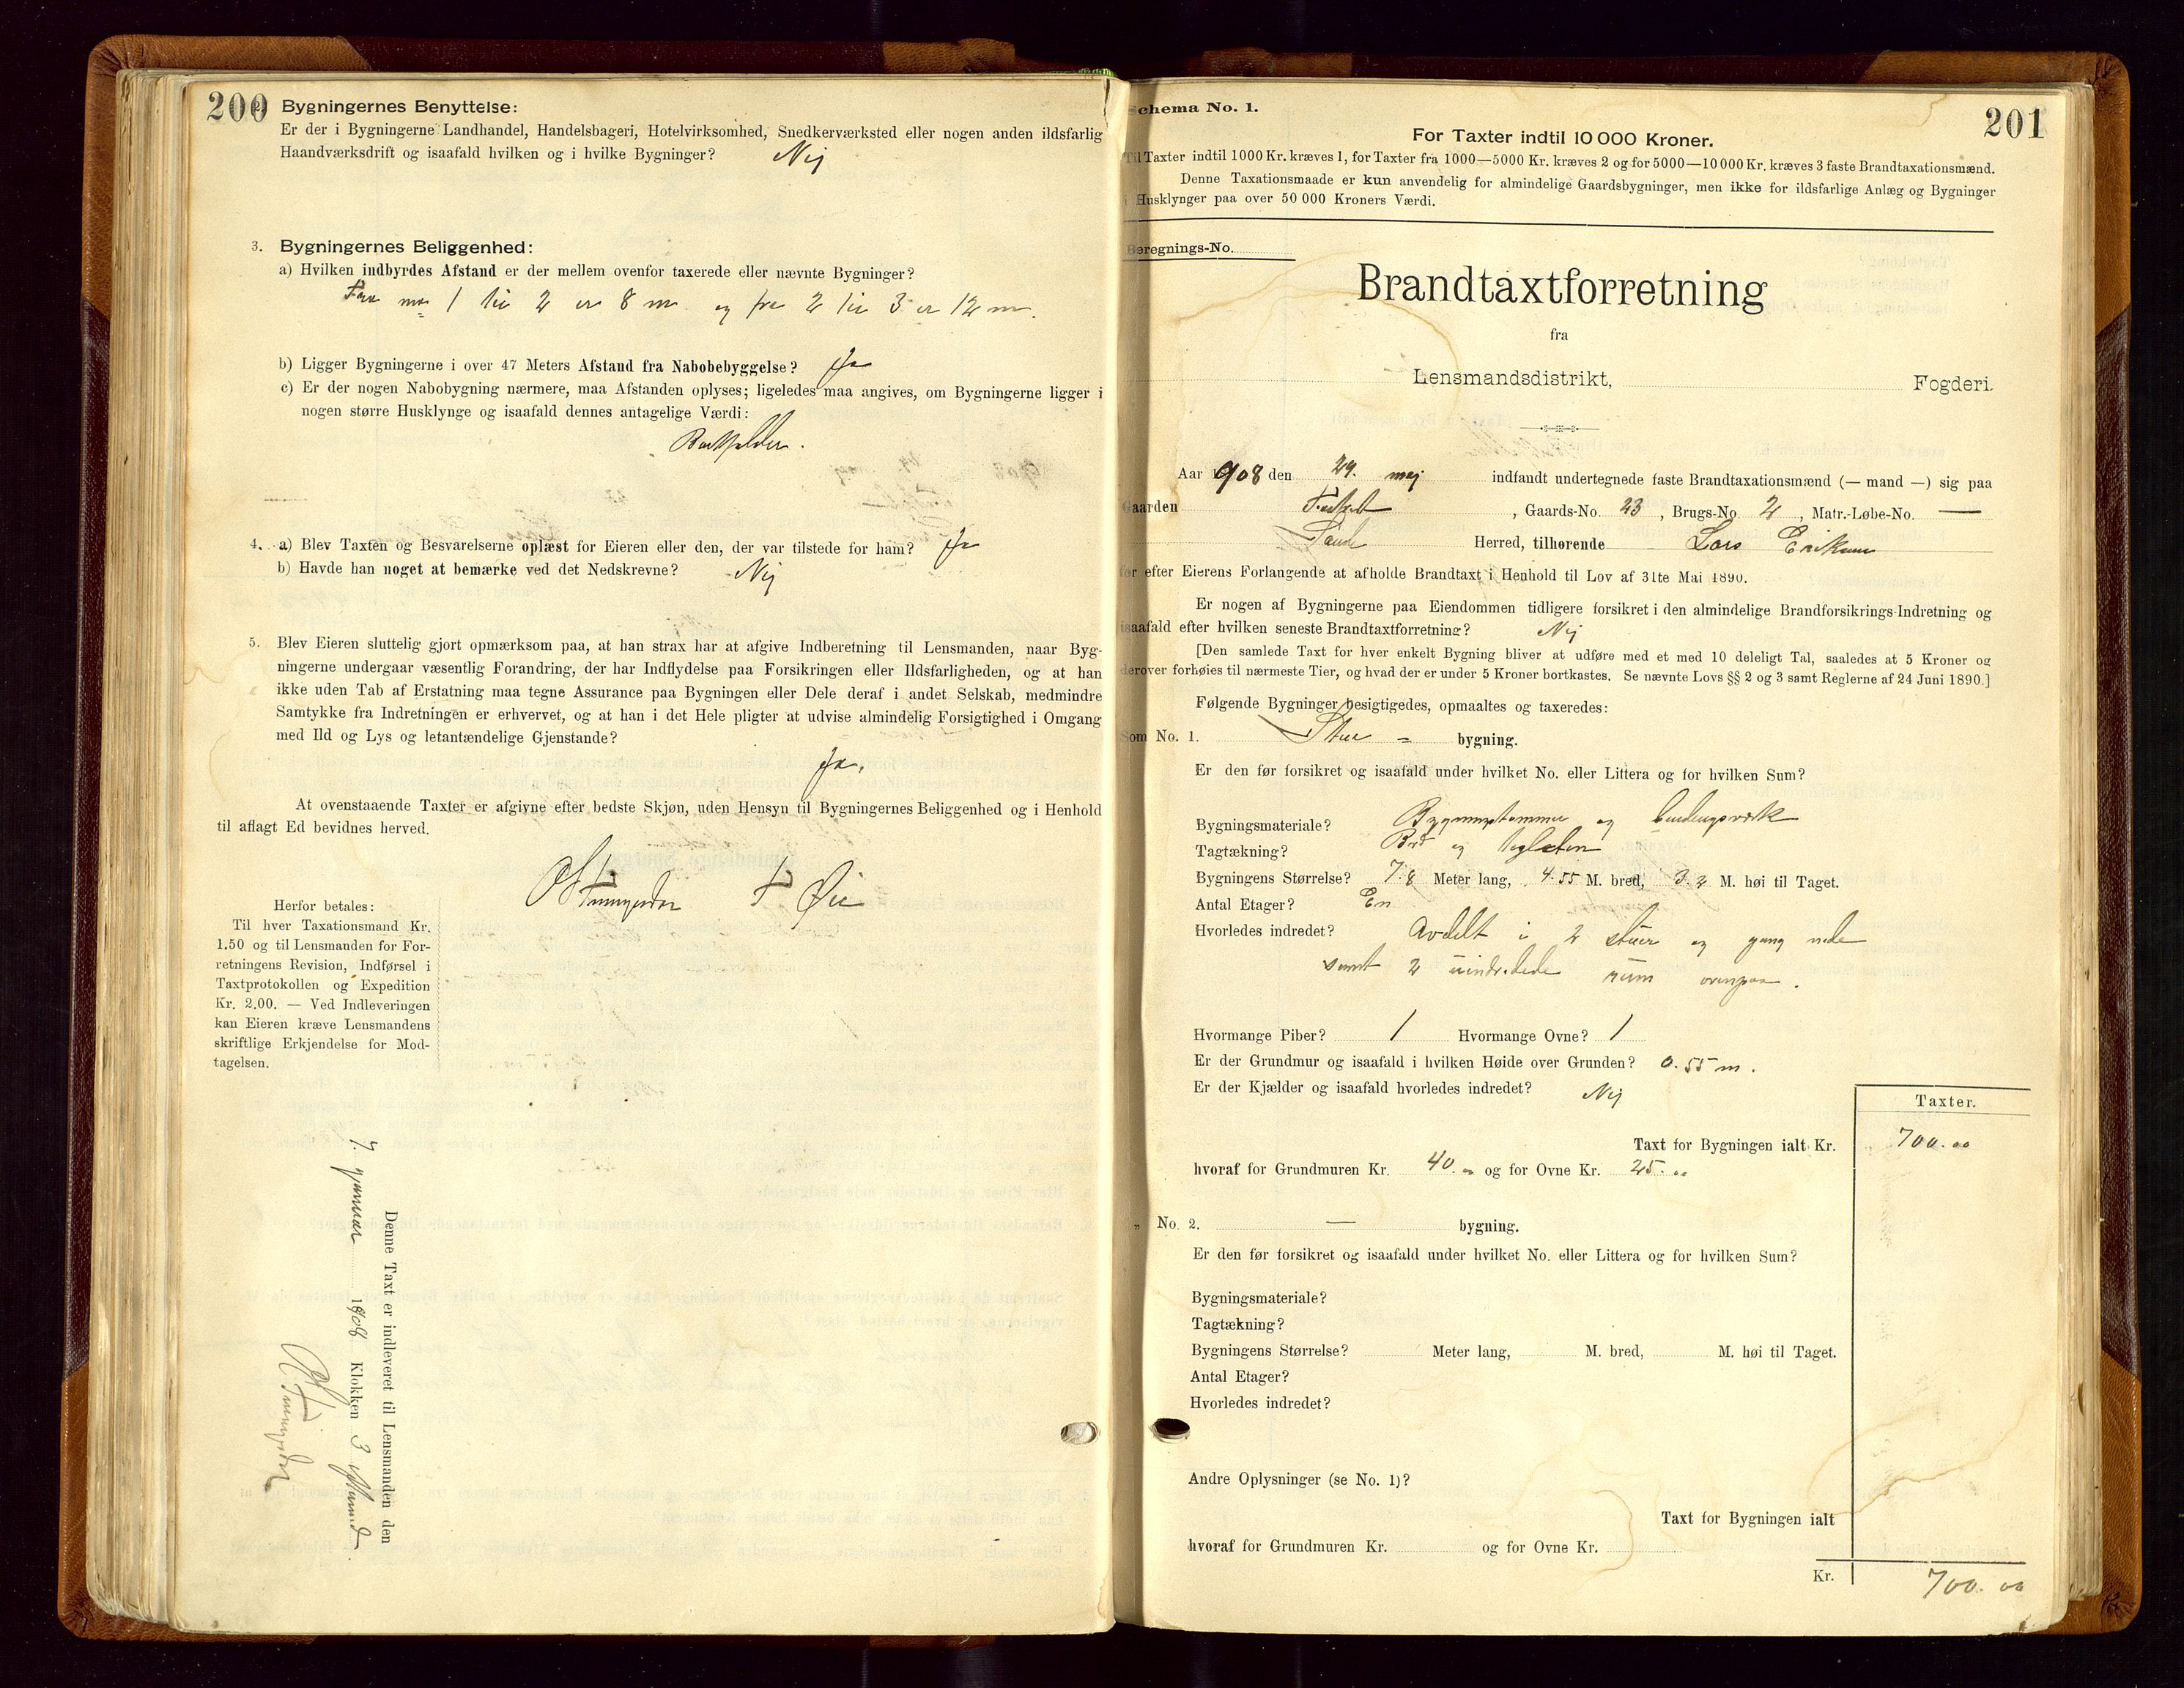 200
Bygningernes Benyttelse:
Er der i Bygningerne Landhandel, Handelsbageri, Hotelvirksomhed, Snedkerværksted eller nogen anden ildsfarlig
Haandværksdrift og isaafald hvilken og i hvilke Bygninger? Nej
3. Bygningernes Beliggenhed:
a) Hvilken indbyrdes Afstand er der mellem ovenfor taxerede eller nævnte Bygninger?
Fra no 1 til 2 er 8 m og fra 2 til 3 er 12 m.
b) Ligger Bygningerne i over 47 Meters Afstand fra Nabobebyggelse? Ja
c) Er der nogen Nabobygning nærmere, maa Afstanden oplyses; ligeledes maa angives, om Bygningerne ligger i
nogen større Husklynge og isaafald dennes antagelige Værdi:
Bortfalder.
4. a) Blev Taxten og Besvarelserne oplæst for Eieren eller den, der var tilstede for ham? Ja
b) Havde han noget at bemærke ved det Nedskrevne? Nej
5. Blev Eieren sluttelig gjort opmærksom paa, at han strax har at afgive Indberetning til Lensmanden, naar Byg-
ningerne undergaar væsentlig Forandring, der har Indflydelse paa Forsikringen eller Ildsfarligheden, og at han
ikke uden Tab af Erstatning maa tegne Assurance paa Bygningen eller Dele deraf i andet Selskab, medmindre
Samtykke fra Indretningen er erhvervet, og at han i det Hele pligter at udvise almindelig Forsigtighed i Omgang
med Ild og Lys og letantændelige Gjenstande?
Ja.
At ovenstaaende Taxter er afgivne efter bedste Skjøn, uden Hensyn til Bygningernes Beliggenhed og i Henhold
til aflagt Ed bevidnes herved.
T Øie
Herfor betales:
Til hver Taxationsmand Kr.
1.50 og til Lensmanden for For-
retningens Revision, Indførsel i
Taxtprotokollen og Expedition
Kr. 2.00. — Ved Indleveringen
kan Eieren kræve Lensmandens
skriftlige Erkjendelse for Mod-
tagelsen.
Denne Taxt er indleveret til Lensmanden den
7. januar 1908 Klokken 3 efterm
201
Schema No. 1.
For Taxter indtil 10 000 Kroner.
Til Taxter indtil 1000 Kr. kræves 1, for Taxter fra 1000—5000 Kr. kræves 2 og for 5000—10 000 Kr. kræves 3 faste Brandtaxationsmænd.
Denne Taxationsmaade er kun anvendelig for almindelige Gaardsbygninger, men ikke for ildsfarlige Anlæg og Bygninger
i Husklynger paa over 50 000 Kroners Værdi.
Beregnings-No.
Brandtaxtforretning
fra
Lensmandsdistrikt, Fogderi.
Aar 1908 den 29. maj indfandt undertegnede faste Brandtaxationsmænd (— mand —) sig paa
Gaarden , Gaards-No. 23 , Brugs-No 2 , Matr.-Løbe-No. —
Sande Herred, tilhørende Lars Eriksen
for efter Eierens Forlangende at afholde Brandtaxt i Henhold til Lov af 31te Mai 1890.
Er nogen af Bygningerne paa Eiendommen tidligere forsikret i den almindelige Brandforsikrings-Indretning og
isaafald efter hvilken seneste Brandtaxtforretning? Nej
[Den samlede Taxt for hver enkelt Bygning bliver at udføre med et med 10 deleligt Tal, saaledes at 5 Kroner og
derover forhøies til nærmeste Tier, og hvad der er under 5 Kroner bortkastes. Se nævnte Lovs §§ 2 og 3 samt Reglerne af 24 Juni 1890.]
Følgende Bygninger besigtigedes, opmaaltes og taxeredes:
Som No. 1. Stue - bygning.
Er den før forsikret og isaafald under hvilket No. eller Littera og for hvilken Sum?
Bygningsmateriale? Bygningstømmer og bindingsværk
Tagtækning? Bord og taglsten
Bygningens Størrelse? 7.8 Meter lang, 4.55 M. bred, 3.2 M. høi til Taget.
Antal Etager? En
Hvorledes indredet? Avdelt i 2 stuer og gang nede
samt 2 uindredede rum ovenpaa.
Hvormange Piber? 1 Hvormange Ovne? 1
Er der Grundmur og isaafald i hvilken Høide over Grunden? 0.55 m.
Er der Kjælder og isaafald hvorledes indredet? Nej
Taxter.
Taxt for Bygningen ialt Kr. 700.00
hvoraf for Grundmuren Kr. 40.00 og for Ovne Kr. 25.00
„ No. 2. — bygning.
Er den før forsikret og isaafald under hvilket No. eller Littera og for hvilken Sum?
Bygningsmateriale?
Tagtækning?
Bygningens Størrelse? Meter lang, M. bred, M. høi til Taget.
Antal Etager?
Hvorledes indredet?
Andre Oplysninger (se No. 1)?
Taxt for Bygningen ialt
hvoraf for Grundmuren Kr. og for Ovne Kr.
Kr. 700.00